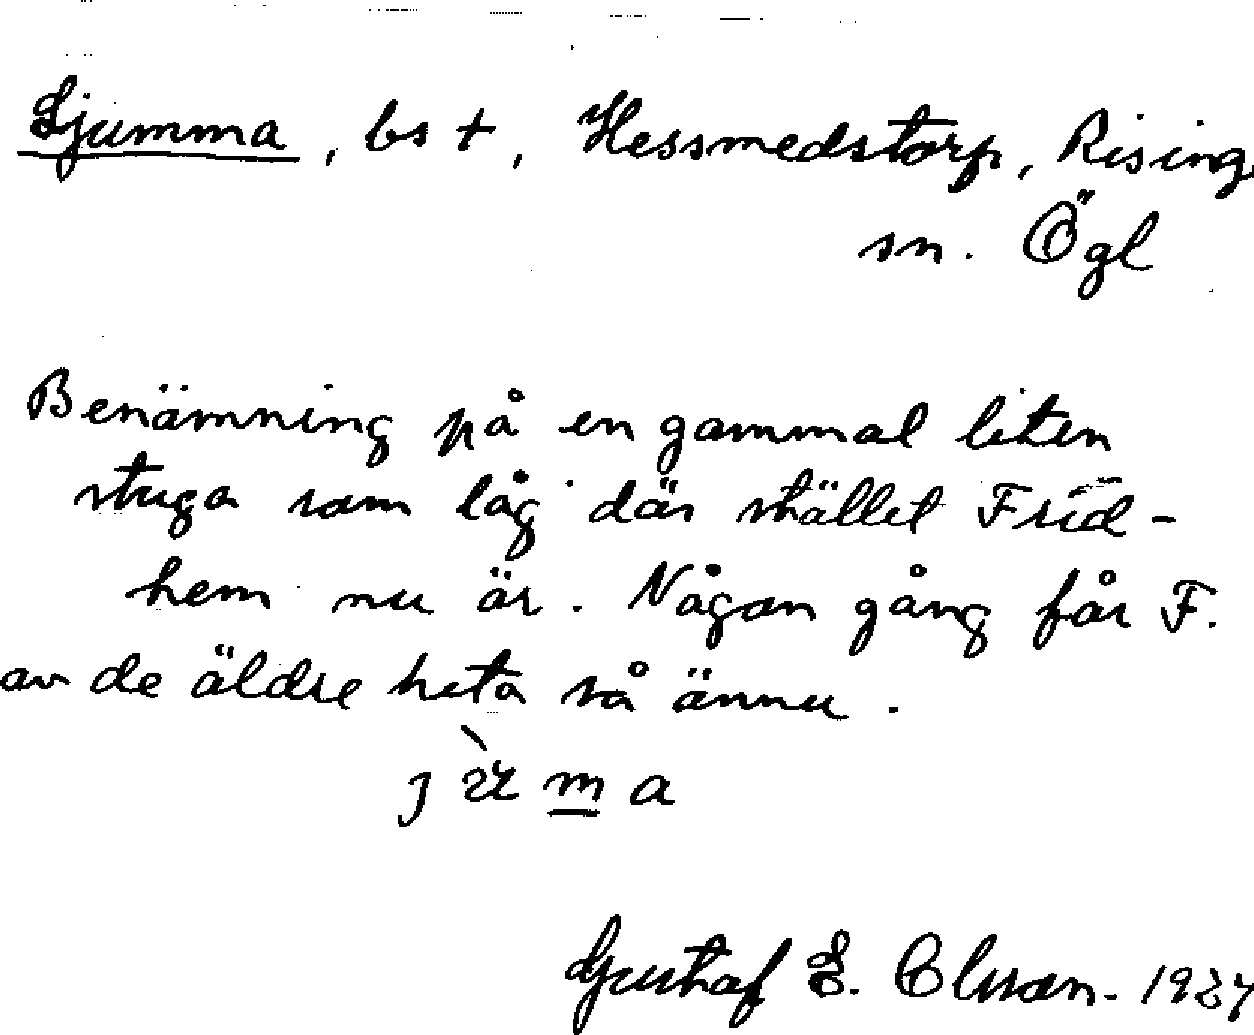 Ljumma, bs +, Hessmedstorp, Risinge
sn. Ögl
Benämning på en gammal liten
stuga som låg där stället Frid-
hem nu är. Någon gång får F.
av de äldre heta så ännu.
Gustaf E. Olsson. 1927